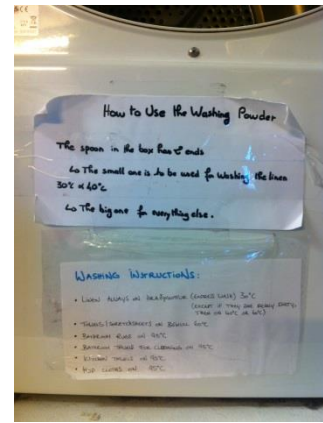 How to Use the Washing Powder
The spoon in the box has 2 ends
↳ The small one is to be used for washing the linen
30°C & 40°C
↳ The big one for everything else.
WASHING INSTRUCTIONS:
• LINEN ALWAYS ON (EXPRESS WASH) 30°C
(EXCEPT IF THEY ARE REALLY
THEN ON 40°C OR 60°C)
• TOWELS ON 60°C
• BATHROOM RUGS ON 95°C
• BATHROOM FOR CLEANING ON 95°C
• KITCHEN TOWELS ON 95°C
• MOP CLOTHS ON 95°C